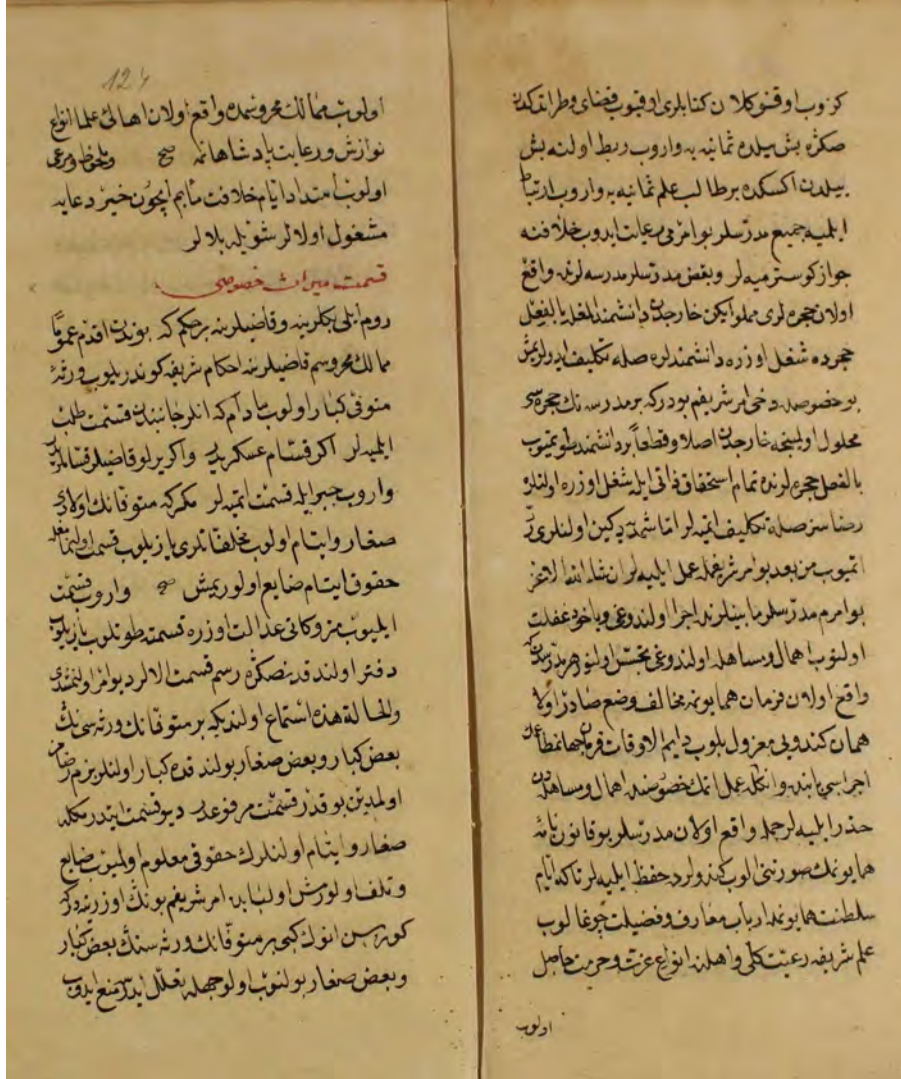 كزوب اوقنو كلان كتابلرى اوقيوب قضاى وطر اتدكدن
صكره بش ييلده ثمانيه يه واروب ربط اولنه بش
ييلدن اكسكده بر طالب علم ثمانيه يه واروب ارتباط
ايلميه جميع مدرسلر بو امرمى رعايت ايدوب خلافنه
جواز كوسترميه لر و بعض مدرسلر مدرسه لرنده واقع
اولان حجره لرى مملو ايكن خارجدن دانشمند المغله بالفعل
حجرده شغل اوزره دانشمندلره صله تكليف ايدرلريمش
بو خصوصده دخى امر شريفم بودركه بر مدرسه نك حجره سى
محلول اولمينجه خارجدن اصلا و قطعا بر دانشمند طويتميوب
بالفعل حجره لرنده تمام استحقاق ذاتى ايله شغل اوزره اولنلره
رضاسز صله تكليف اتميه لر اما شمديه دكين اولنلرى رد
اتميوب من بعد بو امر شريفمله عمل ايليه لر ان شاء الله الاعز
بو امرم مدرسلر مابينلرنده اجرا اولندوغى وياخود غفلت
اولنوب اهمال و مساهله اولندوغى تجسس اولنور هر مدرسدن كه
واقع اولان فرمان همايونمه مخالف وضع صادر اولا
همان كندويى معزول بلوب دايم الاوقات فرمان جهانمطاعك
اجراسى بابنده و انكله عمل اتمك خصوصنده اهمال و مساهله دن
حذر ايليه لر جمله واقع اولان مدرسلر بو قانون نامه
همايونمك صورتنى الوب كندولرده حفظ ايليه لر تا كه ايام
سلطنت همايونمده ارباب معارف و فضيلت چوغالوب
علم شريفه رغبت كلى و اهلنه انواع عزت و حرمت حاصل
اولوب
124
اولوب ممالك محروسه مده واقع اولان اهالى علما انواع
نوازش و رعايت پادشاهانه مله صح و ملحوظ و مرعى
اولوب امتداد ايام خلافت مآبم ايچون خير دعايه
مشغول اولالر شويله بلالر
قسمت ميراث خصوصى
روم ايلى بكلربكينه و قاضيلرينه بر حكم كه بوندن اقدم عموما
ممالك محروسم قاضيلرينه احكام شريفه كوندريلوب ورثه
متوفى كبار اولوب مادام كه انلر جانبندن قسمت طلب
ايلميه لر اكر قسام عسكريدر و اكر يرلو قاضيلر قساملريدر
واروب جبر ايله قسمت اتميه لر مكر كه متوفانك اولادى
صغار و ايتام اولوب مخلفاتلرى يازيلوب قسمت اولنمامغله
حقوق ايتام ضايع اولوريمش صح واروب قسمت
ايليوب عدالت اوزره قسمت طوتلوب يازيلوب
دفتر اولندقدنصكره رسم قسمت الالر ديو امر اولنمشدى
والحالة هذه استماع اولنديكه بر متوفانك ورثه سى نك
بعض كبار و بعض صغار بولندقده كبار اولنلر بزم رضامز
اولمدين بو قدر قسمت مرفوعدر ديو قسمت ايتدرمكله
صغار و ايتام اولنلرك حقوقى معلوم اولميوب ضايع
و تلف اولورمش اول بابده امر شريفم بونك اوزرينه دركه
كوره سن انوك كبى بر متوفانك ورثه سنك بعض كبار
و بعض صغار بولنوب اول وجهله تعلل ايدر منع ايدوب